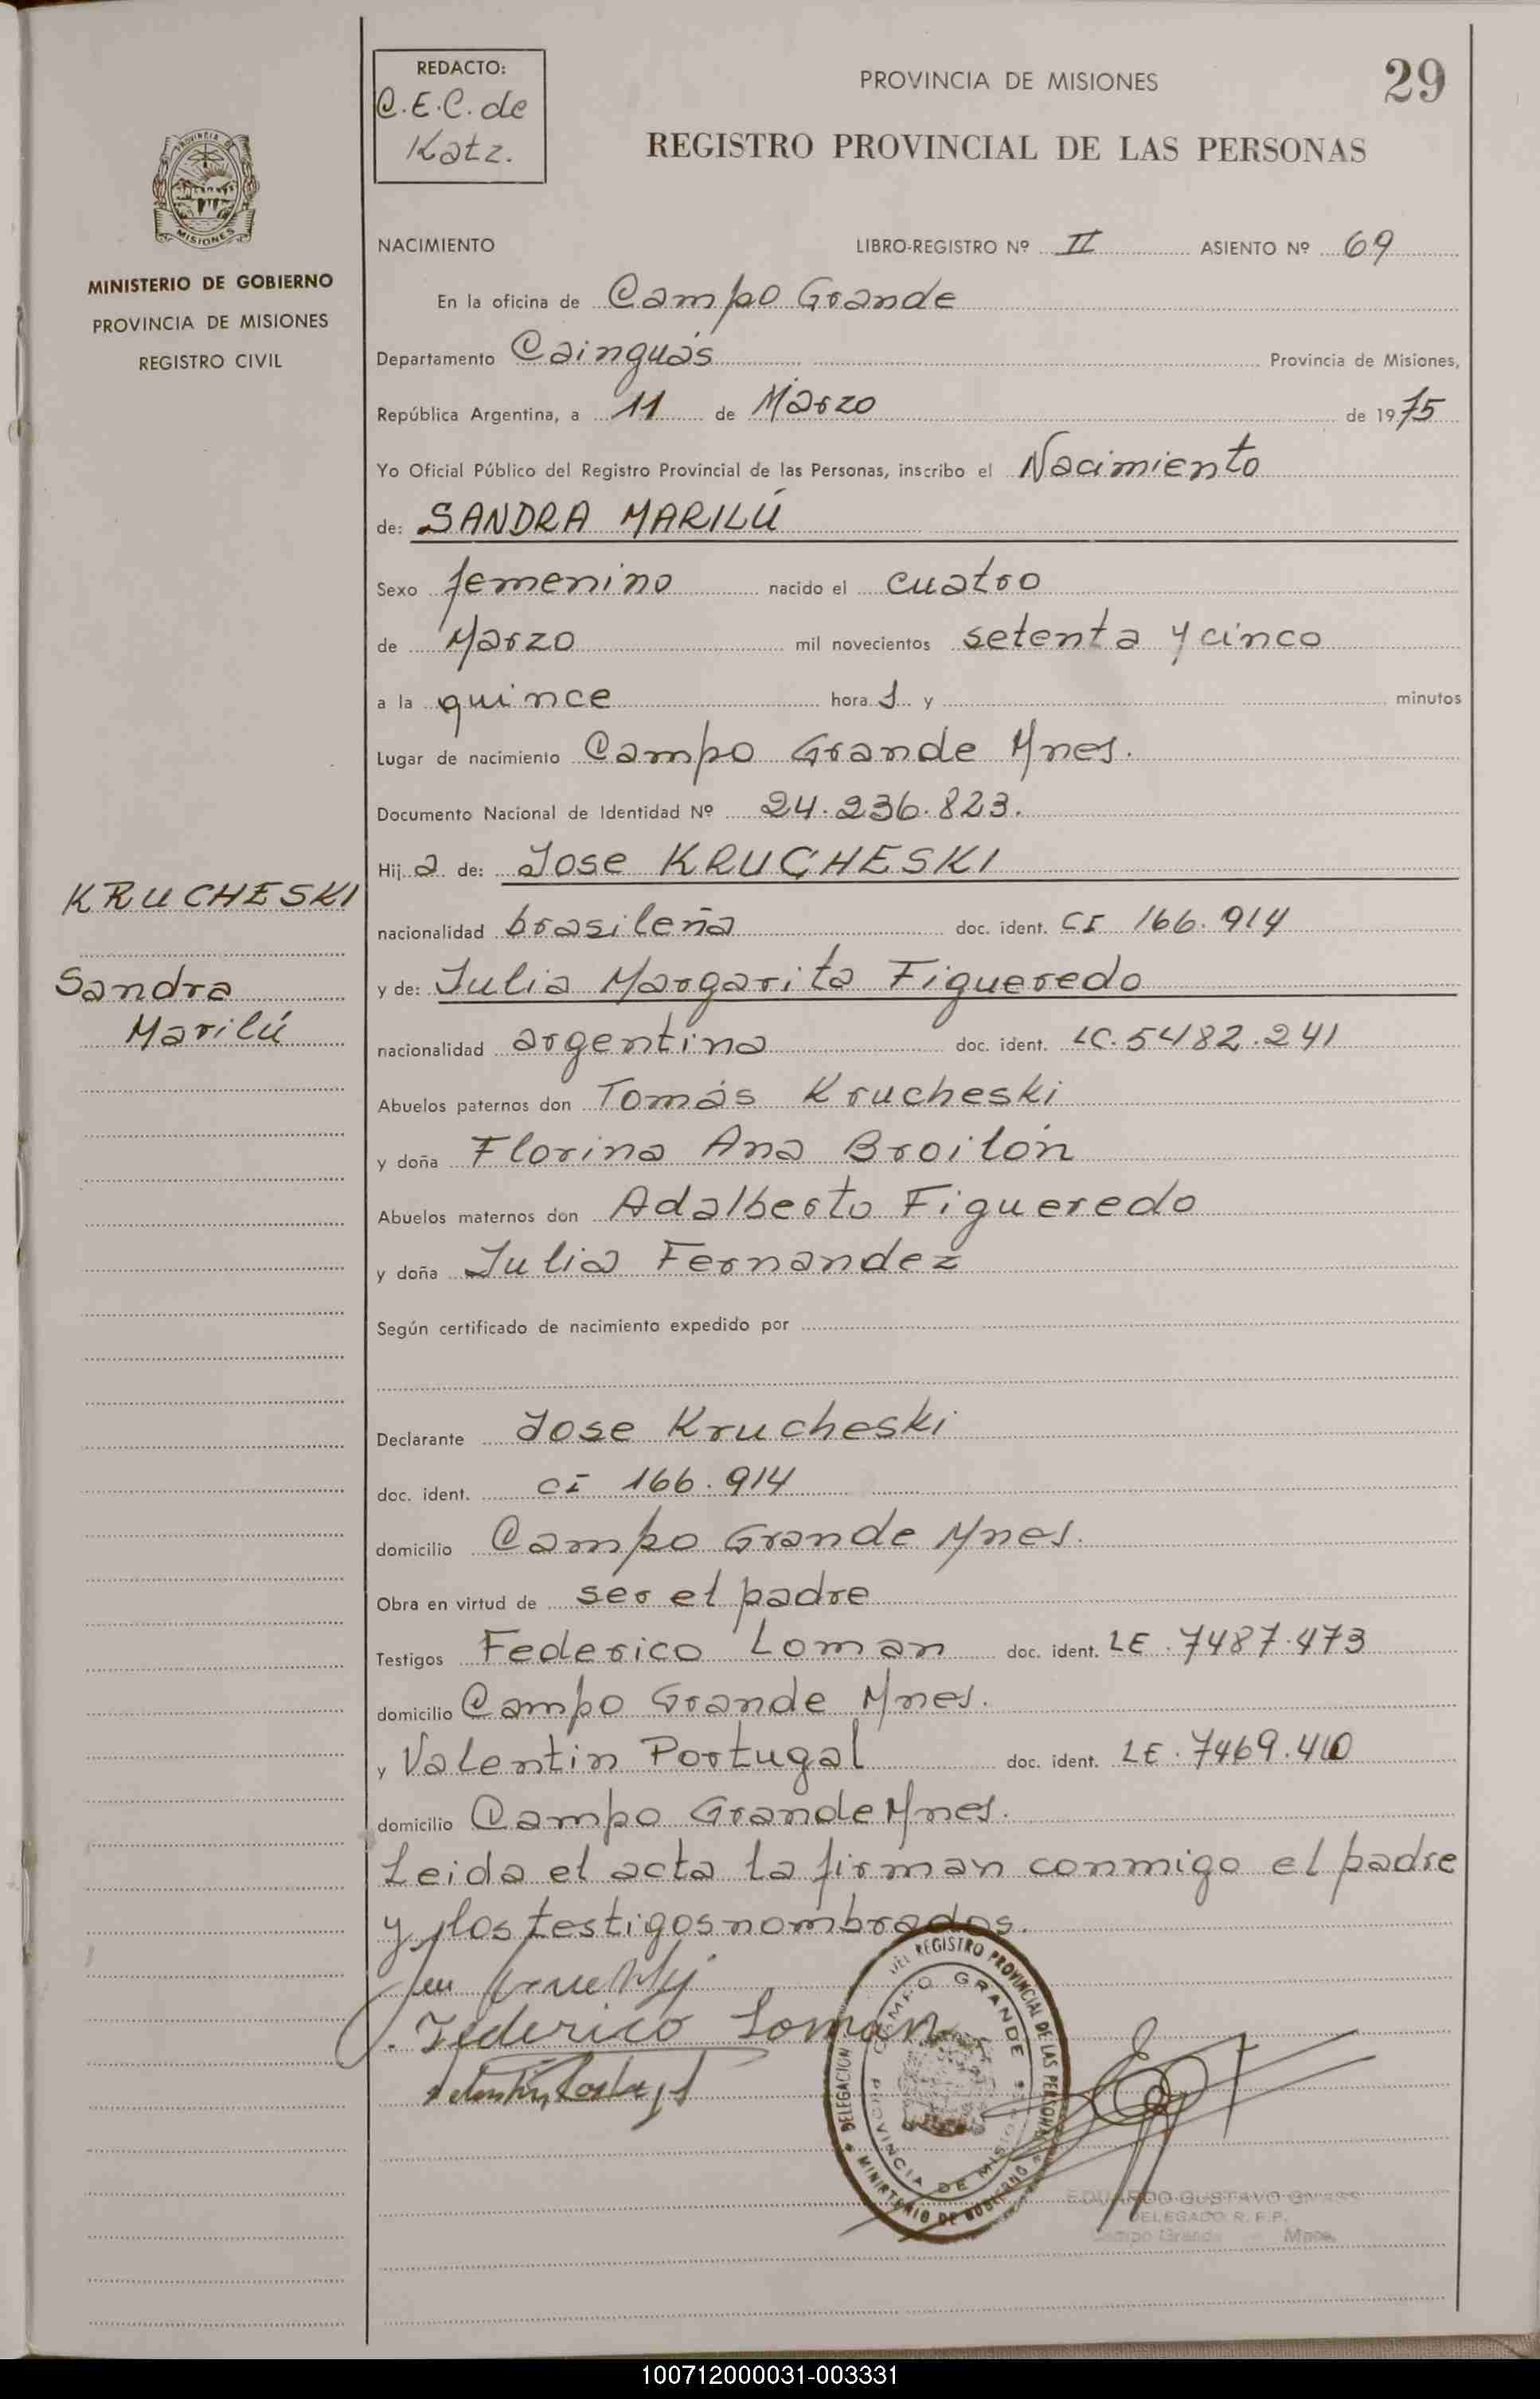 29
REDACTO:
C.E.C. de
Katz.
PROVINCIA DE MISIONES
REGISTRO PROVINCIAL DE LAS PERSONAS
PROVINCIA DE
MISIONES
MINISTERIO DE GOBIERNO
PROVINCIA DE MISIONES
REGISTRO CIVIL
NACIMIENTO LIBRO-REGISTRO Nº II ASIENTO Nº 69
En la oficina de Campo Grande
Departamento Cainguás Provincia de Misiones,
República Argentina, a 11 de Marzo de 1975
Yo Oficial Público del Registro Provincial de las Personas, inscribo el Nacimiento
de: SANDRA MARILÚ
Sexo femenino nacido el cuatro
de Marzo mil novecientos setenta y cinco
a la quince hora s y minutos
Lugar de nacimiento Campo Grande Mnes.
Documento Nacional de Identidad Nº 24.236.823.
Hija de: Jose KRUCHESKI
KRUCHESKI
nacionalidad brasileña doc. ident. CI 166.914
Sandra
y de: Julia Margarita Figueredo
Marilú
nacionalidad argentina doc. ident. LC.5482.241
Abuelos paternos don Tomás Krucheski
y doña Florina Ana Broilón
Abuelos maternos don Adalberto Figueredo
y doña Julia Fernandez
Según certificado de nacimiento expedido por
Declarante Jose Krucheski
doc. ident. CI 166.914
domicilio Campo Grande Mnes.
Obra en virtud de ser el padre
Testigos Federico Loman doc. ident. LE.7487.473
domicilio Campo Grande Mnes.
y Valentin Portugal doc. ident. LE.7469.410
domicilio Campo Grande Mnes.
Leida el acta la firman conmigo el padre
y los testigos nombrados.
Federico Loman
DELEGACION DEL REGISTRO PROVINCIAL DE LAS PERSONAS
CAMPO GRANDE
PROVINCIA DE MISIONES
MINISTERIO DE GOBIERNO
EDUARDO GUSTAVO
DELEGADO R. P. P.
Campo Grande Mnes.
100712000031-003331